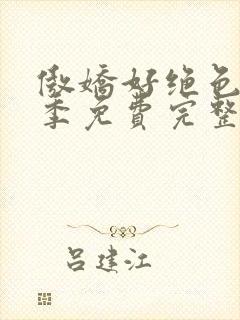 傲嬌好绝色
季免費完整
吕建江